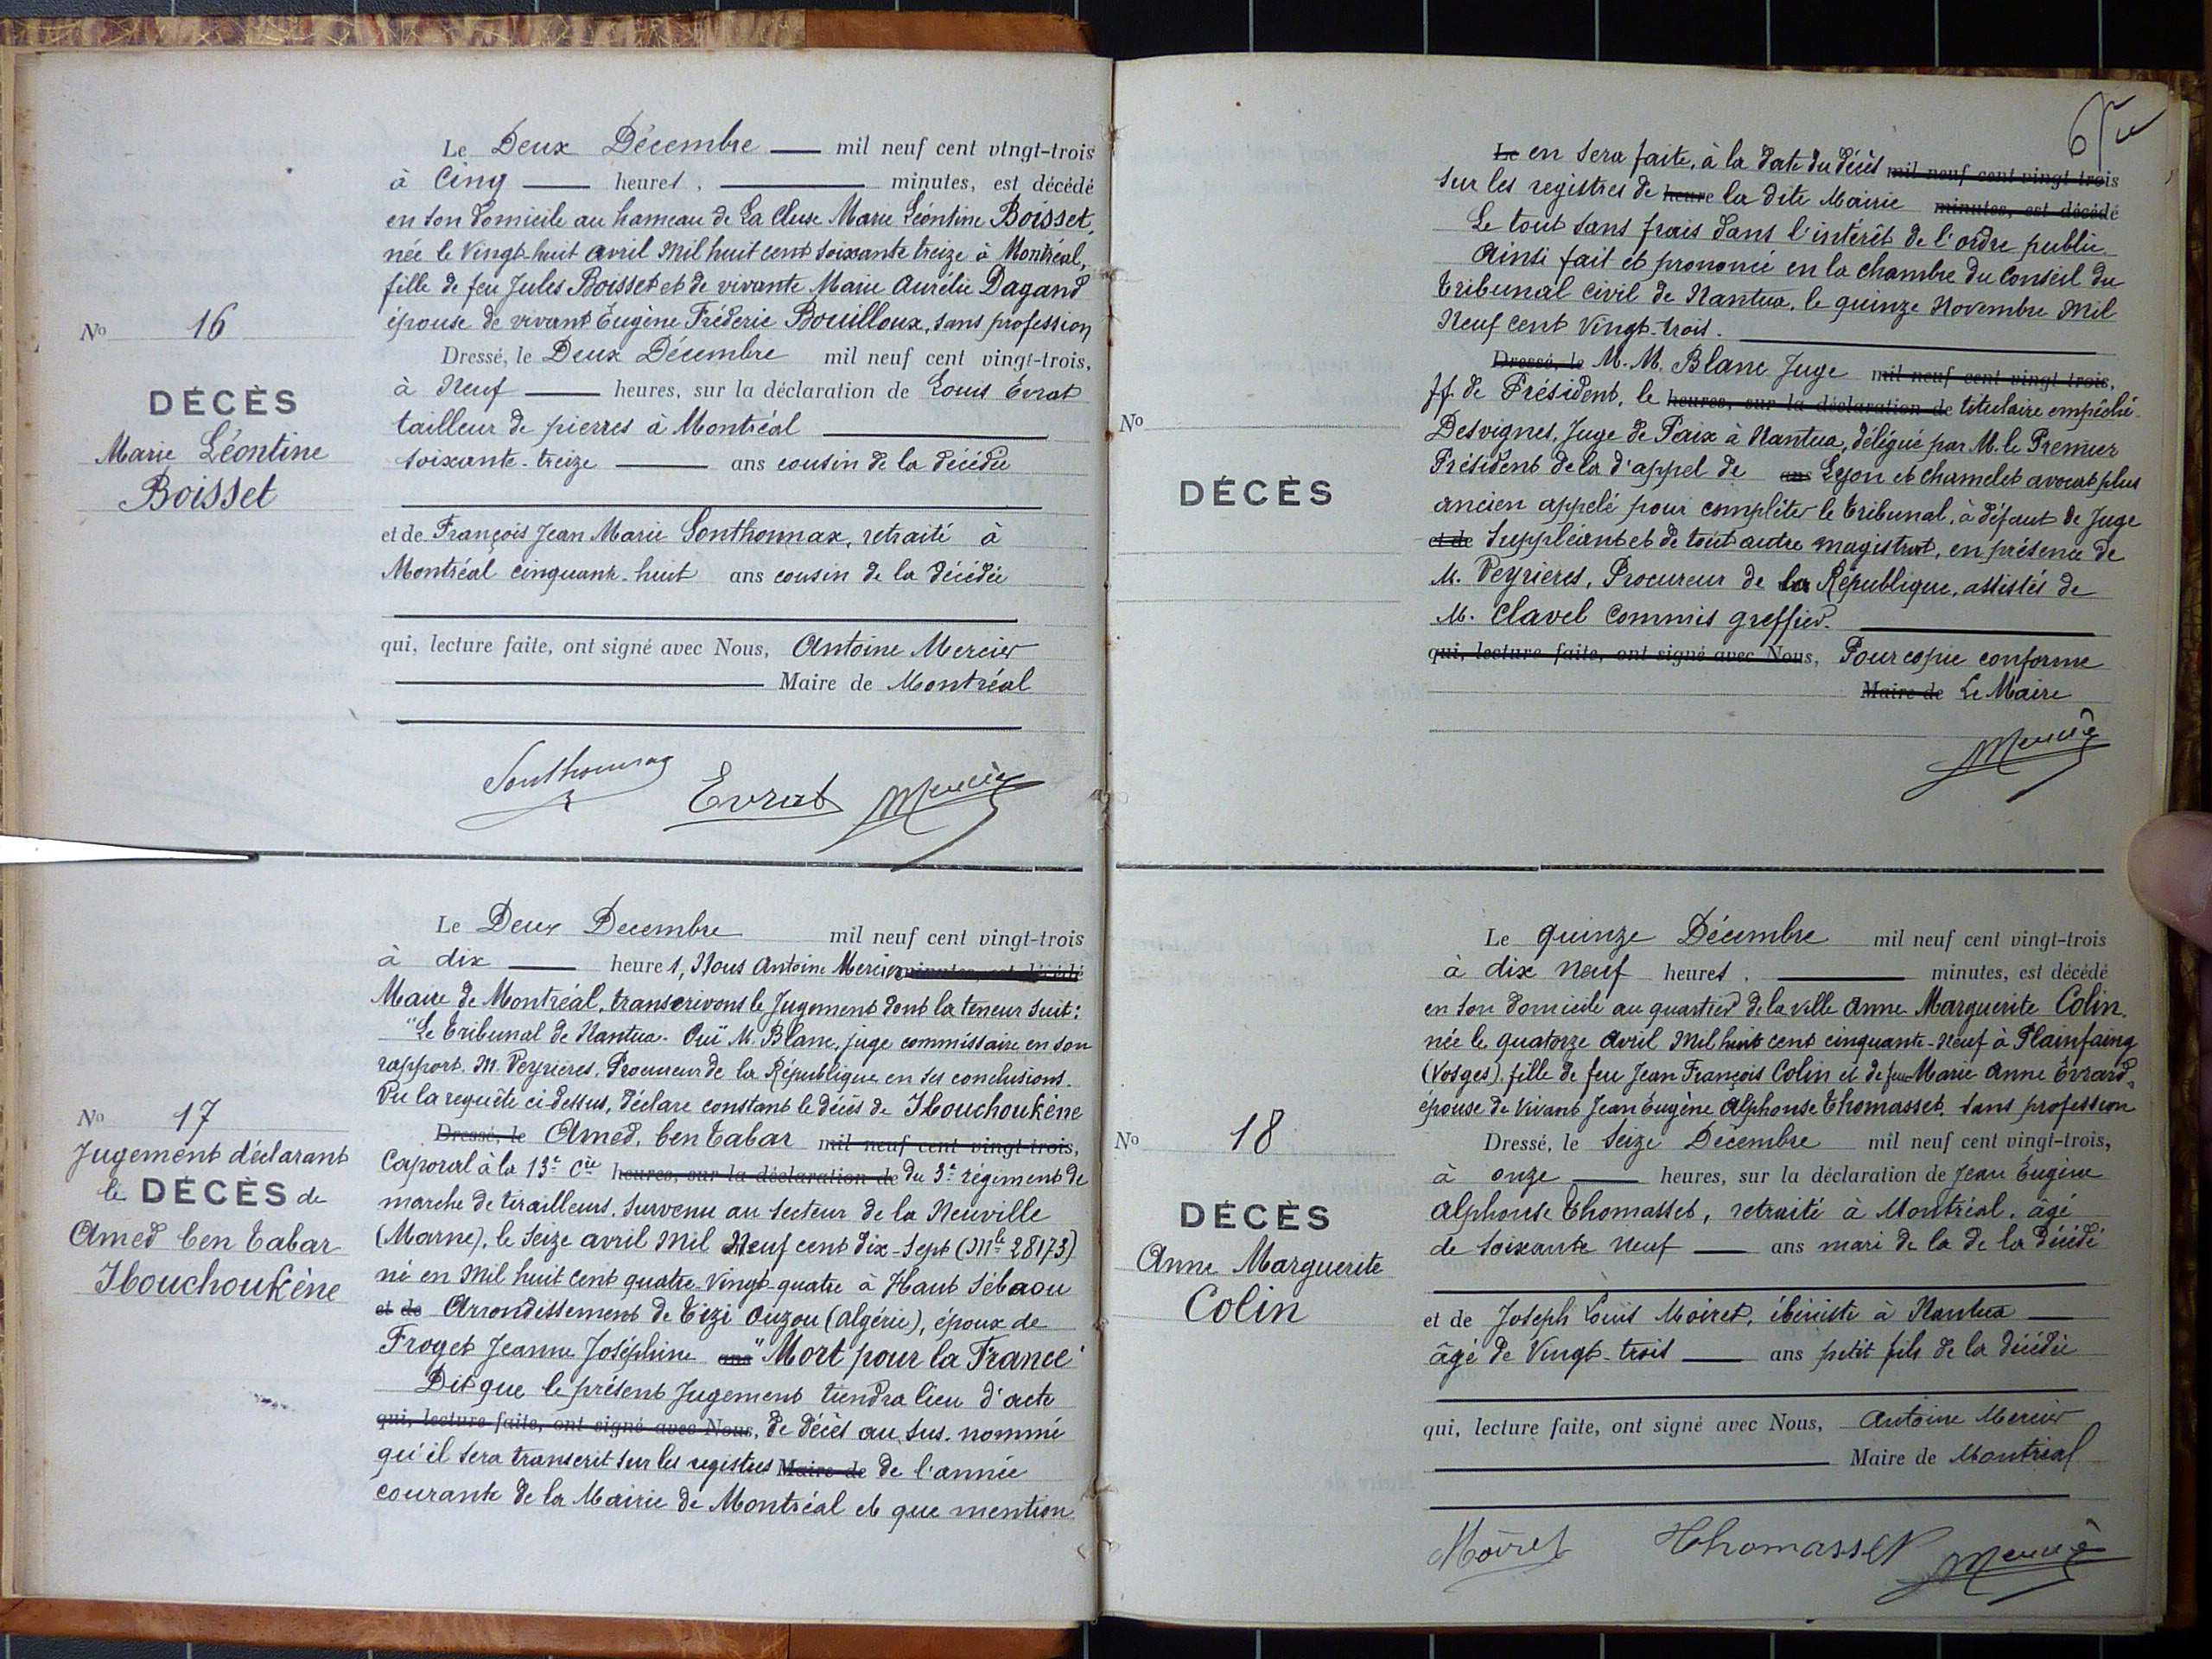 Le Deux Décembre mil neuf cent vingt-trois
à Cinq heures, minutes, est décédé
en son domicile au hameau de La Cluse Marie Léontine Boisset,
née le Vingt-huit avril Mil huit cent soixante treize à Montréal,
fille de feu Jules Boisset et de vivante Marie Aurélie Dagand
épouse de vivant Eugène Fréderic Bouilloux, sans profession
Dressé, le Deux Décembre mil neuf cent vingt-trois,
à Neuf heures, sur la déclaration de Louis Evrat
tailleur de pierres à Montréal
soixante-treize ans cousin de la décédée
et de François Jean Marie Sonthonnax, retraité à
Montréal cinquante-huit ans cousin de la décédée
qui, lecture faite, ont signé avec Nous, Antoine Mercier
Maire de Montréal
No 16
DÉCÈS
Marie Léontine
Boisset
Sonthonnax Evrat Mercier
Le Deux Decembre mil neuf cent vingt-trois
à dix heures, Nous Antoine Mercier minutes, est décédé
Maire de Montréal, transcrivons le Jugement dont la teneur suit:
"Le Tribunal de Nantua. Ouï M. Blanc, juge commissaire en son
rapport. M. Peyrieres, Procureur de la République en ses conclusions.
Vu la requête ci dessus, déclare constant le décès de Ibouchoukène
Dressé, le Amed, ben Tabar mil neuf cent vingt-trois,
Caporal à la 13e Cie heures, sur la déclaration de du 3e régiment de
marche de tirailleurs, survenu au secteur de la Neuville
(Marne), le seize avril Mil Neuf cent dix-sept (Mle 28173)
né en Mil huit cent quatre-vingt-quatre à Haut Sébaou
et de Arrondissement de Tizi Ouzou (Algérie), époux de
Froget Jeanne Joséphine ans "Mort pour la France"
Dit que le présent Jugement tiendra lieu d'acte
qui, lecture faite, ont signé avec Nous, de décès au sus-nommé
qu'il sera transcrit sur les registres Maire de de l'année
courante de la Mairie de Montréal et que mention
No 17
Jugement déclarant
le DÉCÈS de
Amed ben Tabar
Ibouchoukène
Le en sera faite, à la date du décès mil neuf cent vingt-trois
sur les registres de heure la dite Mairie minutes, est décédé
Le tout sans frais dans l'intérêt de l'ordre public.
Ainsi fait et prononcé en la chambre du Conseil du
Tribunal Civil de Nantua, le quinze Novembre Mil
Neuf cent Vingt-trois.
Dressé, le M. M. Blanc Juge mil neuf cent vingt-trois,
ff de Président, le heures, sur la déclaration de titulaire empêché
Desvignes, Juge de Paix à Nantua, délégué par M. le Premier
Président de la d'appel de ans Lyon et Chamelet avocat plus
ancien appelé pour compléter le Tribunal, à défaut de Juge
et de Suppléant et de tout autre magistrat, en présence de
M. Peyrieres, Procureur de la République, assistés de
M. Clavel Commis greffier.
qui, lecture faite, ont signé avec Nous, Pour copie conforme
Maire de Le Maire
Mercier
No
DÉCÈS
Le quinze Décembre mil neuf cent vingt-trois
à dix neuf heures, minutes, est décédé
en son domicile au quartier de la ville Anne Marguerite Colin,
née le quatorze Avril Mil huit cent cinquante-neuf à Plainfaing
(Vosges) fille de feu Jean François Colin et de feu Marie Anne Evrard,
épouse de Vivant Jean Eugène Alphonse Thomasset, sans profession
Dressé, le Seize Décembre mil neuf cent vingt-trois,
à onze heures, sur la déclaration de Jean Eugène
Alphonse Thomasset, retraité à Montréal, âgé
de soixante neuf ans mari de la de la décédé
et de Joseph Louis Moiret, ébéniste à Nantua
âgé de Vingt-trois ans petit fils de la décédée
qui, lecture faite, ont signé avec Nous, Antoine Mercier
Maire de Montréal
No 18
DÉCÈS
Anne Marguerite
Colin
Moiret Thomasset Mercier